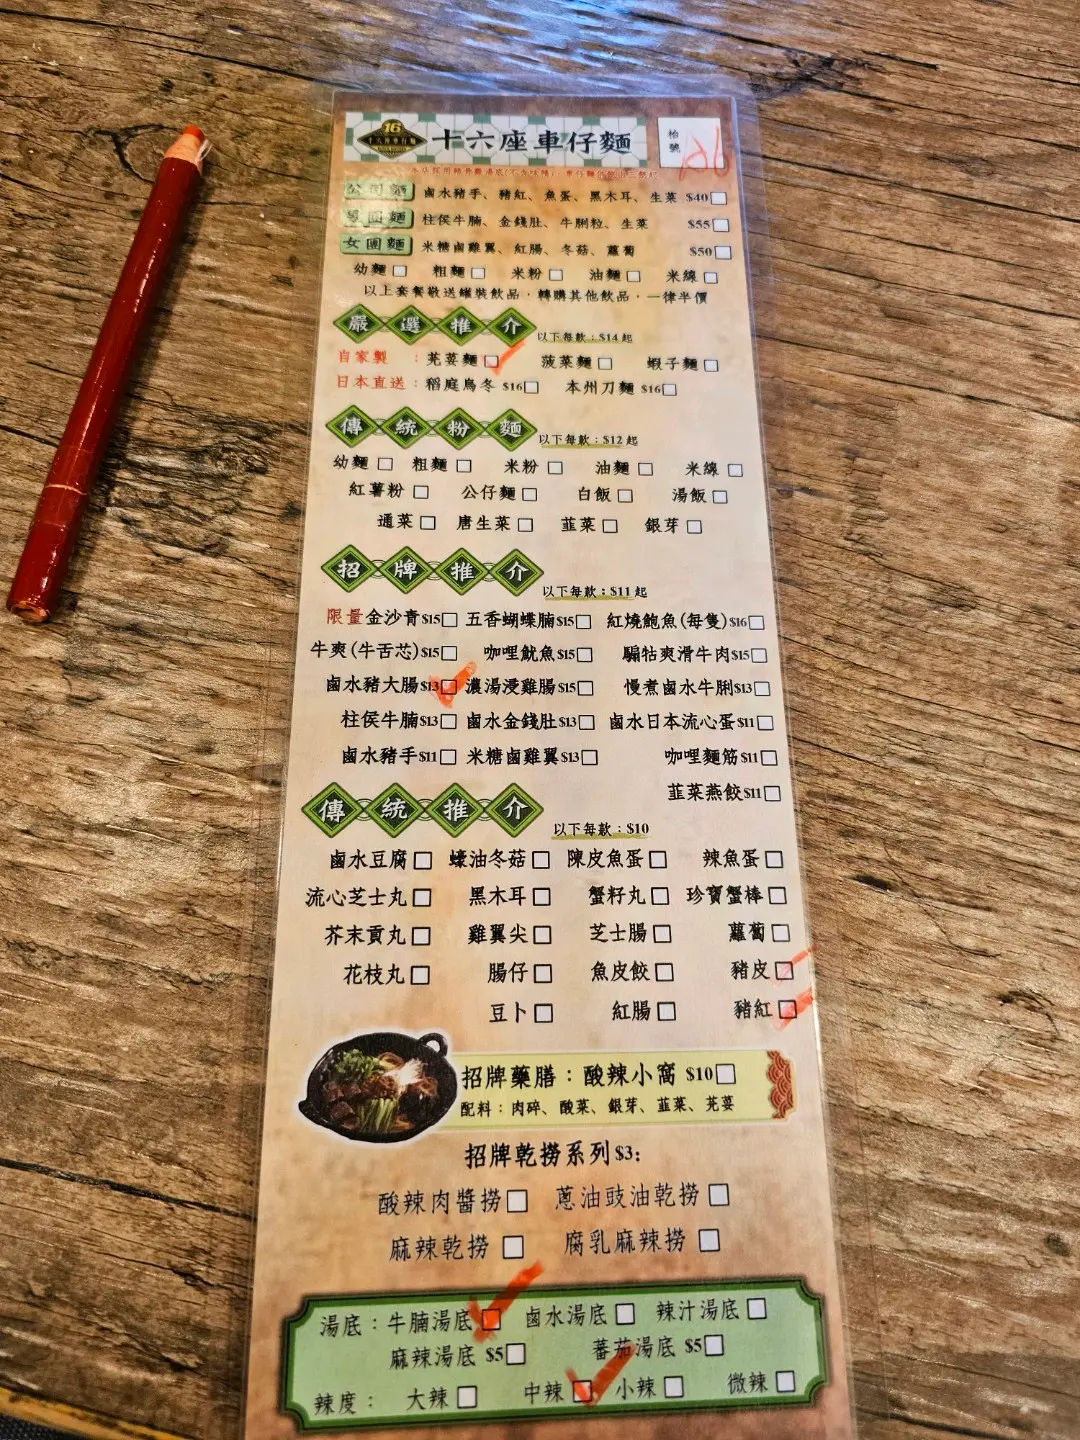 16
十六座車仔麵
十六座車仔麵
枱號 26
公司麵 鹵水豬手、豬紅、魚蛋、黑木耳、生菜 $40
男團麵 柱侯牛腩、金錢肚、牛脷粒、生菜 $55
女團麵 米糖鹵雞翼、紅腸、冬菇、蘿蔔 $50
幼麵 粗麵 米粉 油麵 米線
以上套餐敬送罐裝飲品，轉購其他飲品，一律半價
嚴選推介 以下每款：$14起
自家製：芫荽麵 菠菜麵 蝦子麵
日本直送：稻庭烏冬 $16 本州刀麵 $16
傳統粉麵 以下每款：$12起
幼麵 粗麵 米粉 油麵 米線
紅薯粉 公仔麵 白飯 湯飯
通菜 唐生菜 韮菜 銀芽
招牌推介 以下每款：$11起
限量金沙青$15 五香蝴蝶腩$15 紅燒鮑魚(每隻)$16
牛爽(牛舌芯)$15 咖哩魷魚$15 騸牯爽滑牛肉$15
鹵水豬大腸$13 濃湯浸雞腸$15 慢煮鹵水牛脷$13
柱侯牛腩$13 鹵水金錢肚$13 鹵水日本流心蛋$11
鹵水豬手$11 米糖鹵雞翼$13 咖哩麵筋$11
韮菜燕餃$11
傳統推介 以下每款：$10
鹵水豆腐 蠔油冬菇 陳皮魚蛋 辣魚蛋
流心芝士丸 黑木耳 蟹籽丸 珍寶蟹棒
芥末貢丸 雞翼尖 芝士腸 蘿蔔
花枝丸 腸仔 魚皮餃 豬皮
豆卜 紅腸 豬紅
招牌藥膳：酸辣小窩 $10
配料：肉碎、酸菜、銀芽、韮菜、芫荽
招牌乾撈系列$3：
酸辣肉醬撈 蔥油豉油乾撈
麻辣乾撈 腐乳麻辣撈
湯底：牛腩湯底 鹵水湯底 辣汁湯底
麻辣湯底 $5 蕃茄湯底 $5
辣度： 大辣 中辣 小辣 微辣